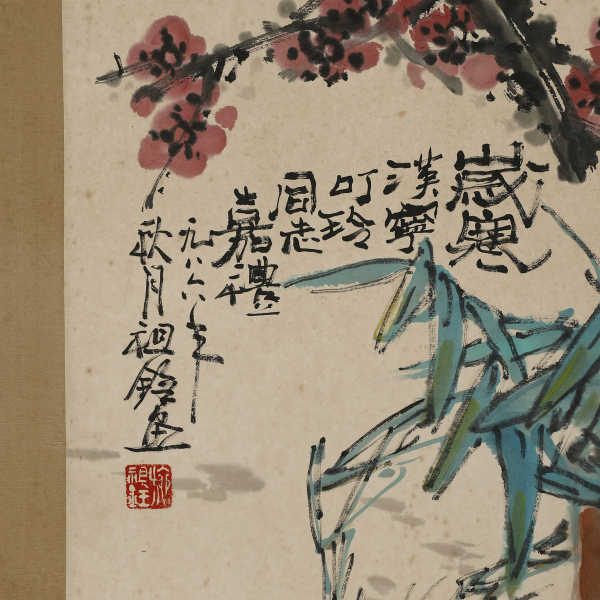 歲寒
漢寧
叮玲
同志
嘉禮
九八六年
秋月祖銓画